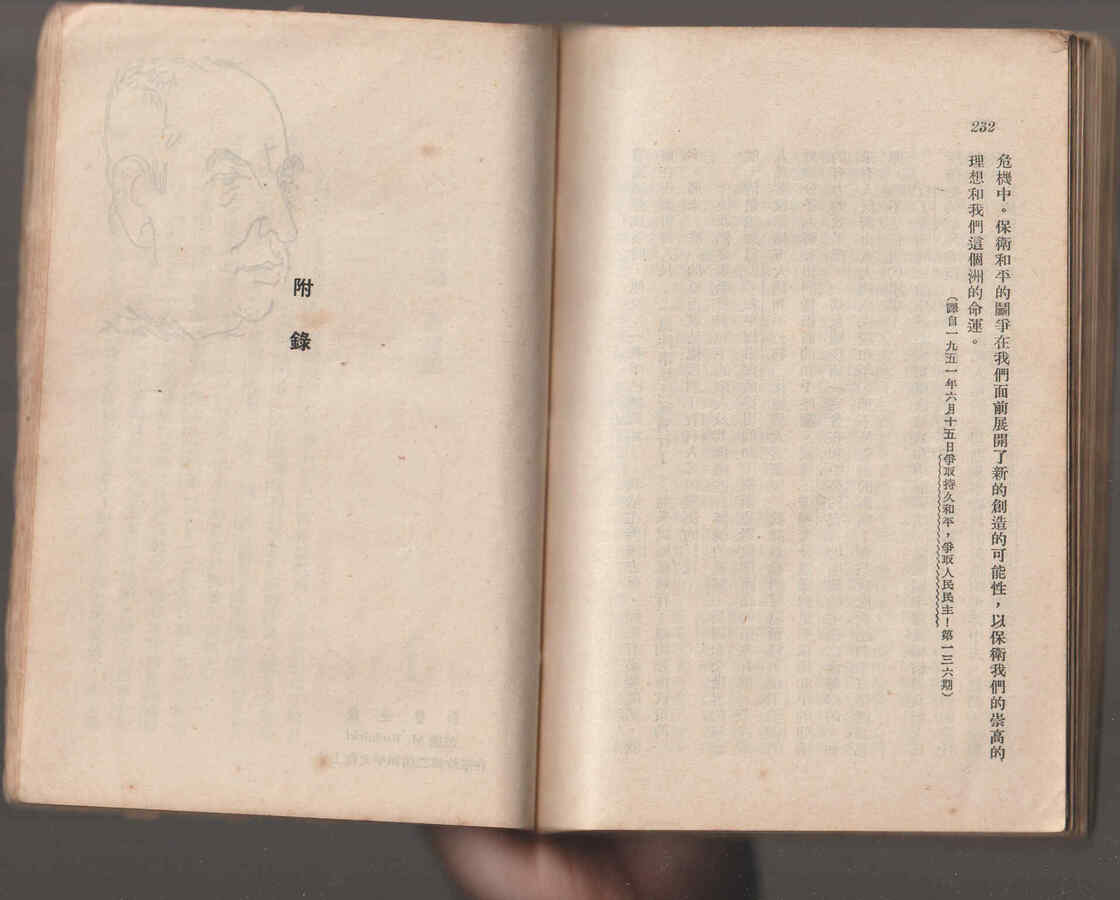 232
危機中。保衛和平的鬬爭在我們面前展開了新的創造的可能性，以保衛我們的崇高的
理想和我們這個洲的命運。
（譯自一九五一年六月十五日爭取持久和平，爭取人民民主！第一三六期）
附錄